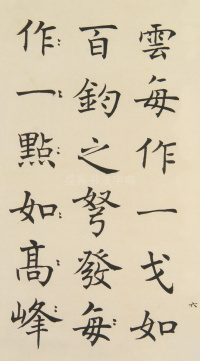 雲每作一戈如
百鈞之弩發每
作一點如高峰
六